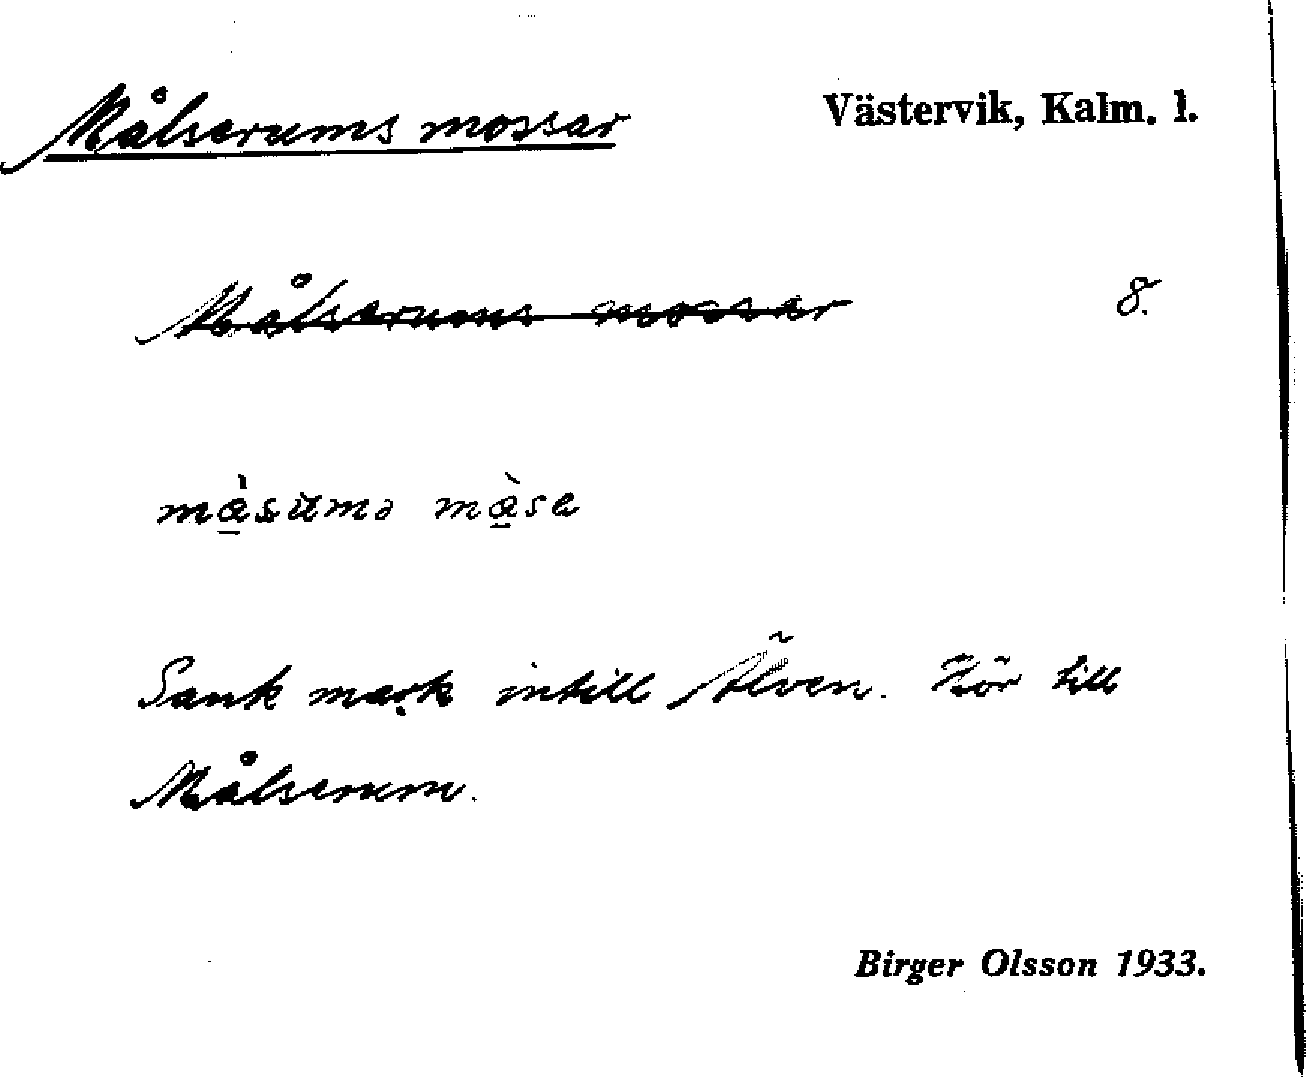 Målserums mossar
Västervik, Kalm. l.
Målserums mossar
8.
Sank mark intill Älven. Hör till
Målserum.
Birger Olsson 1933.